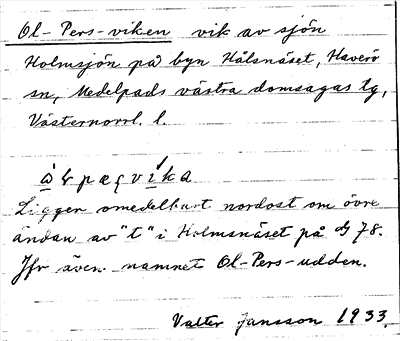 Ol-Pers-viken vik av sjön
Holmsjön på byn Hålsnäset, Haverö
sn, Medelpads västra domsagas tg,
Västernorrl. l.
Ligger omedelbart nordost om övre
ändan av "t" i Holmsnäset på G 78.
Jfr även namnet Ol-Pers-udden.
Valter Jansson 1933.